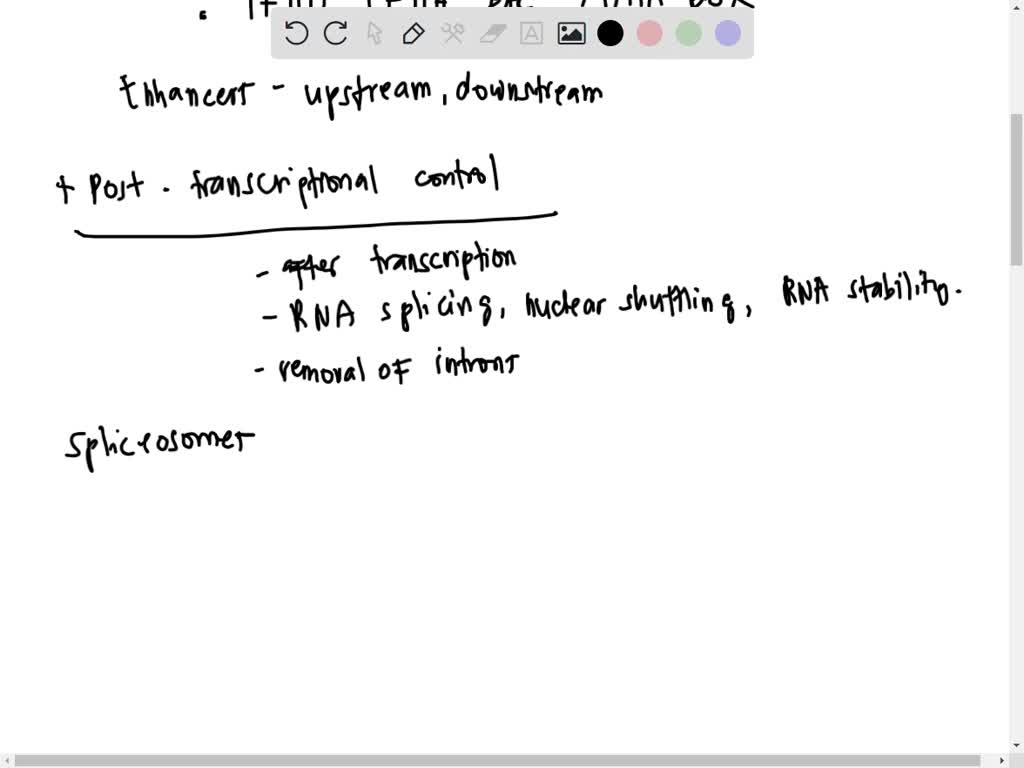 Enhancers - upstream, downstream
+ Post - transcriptional control
- after transcription
- RNA splicing, nuclear shuffling, RNA stability.
- removal of introns
Spliceosomes